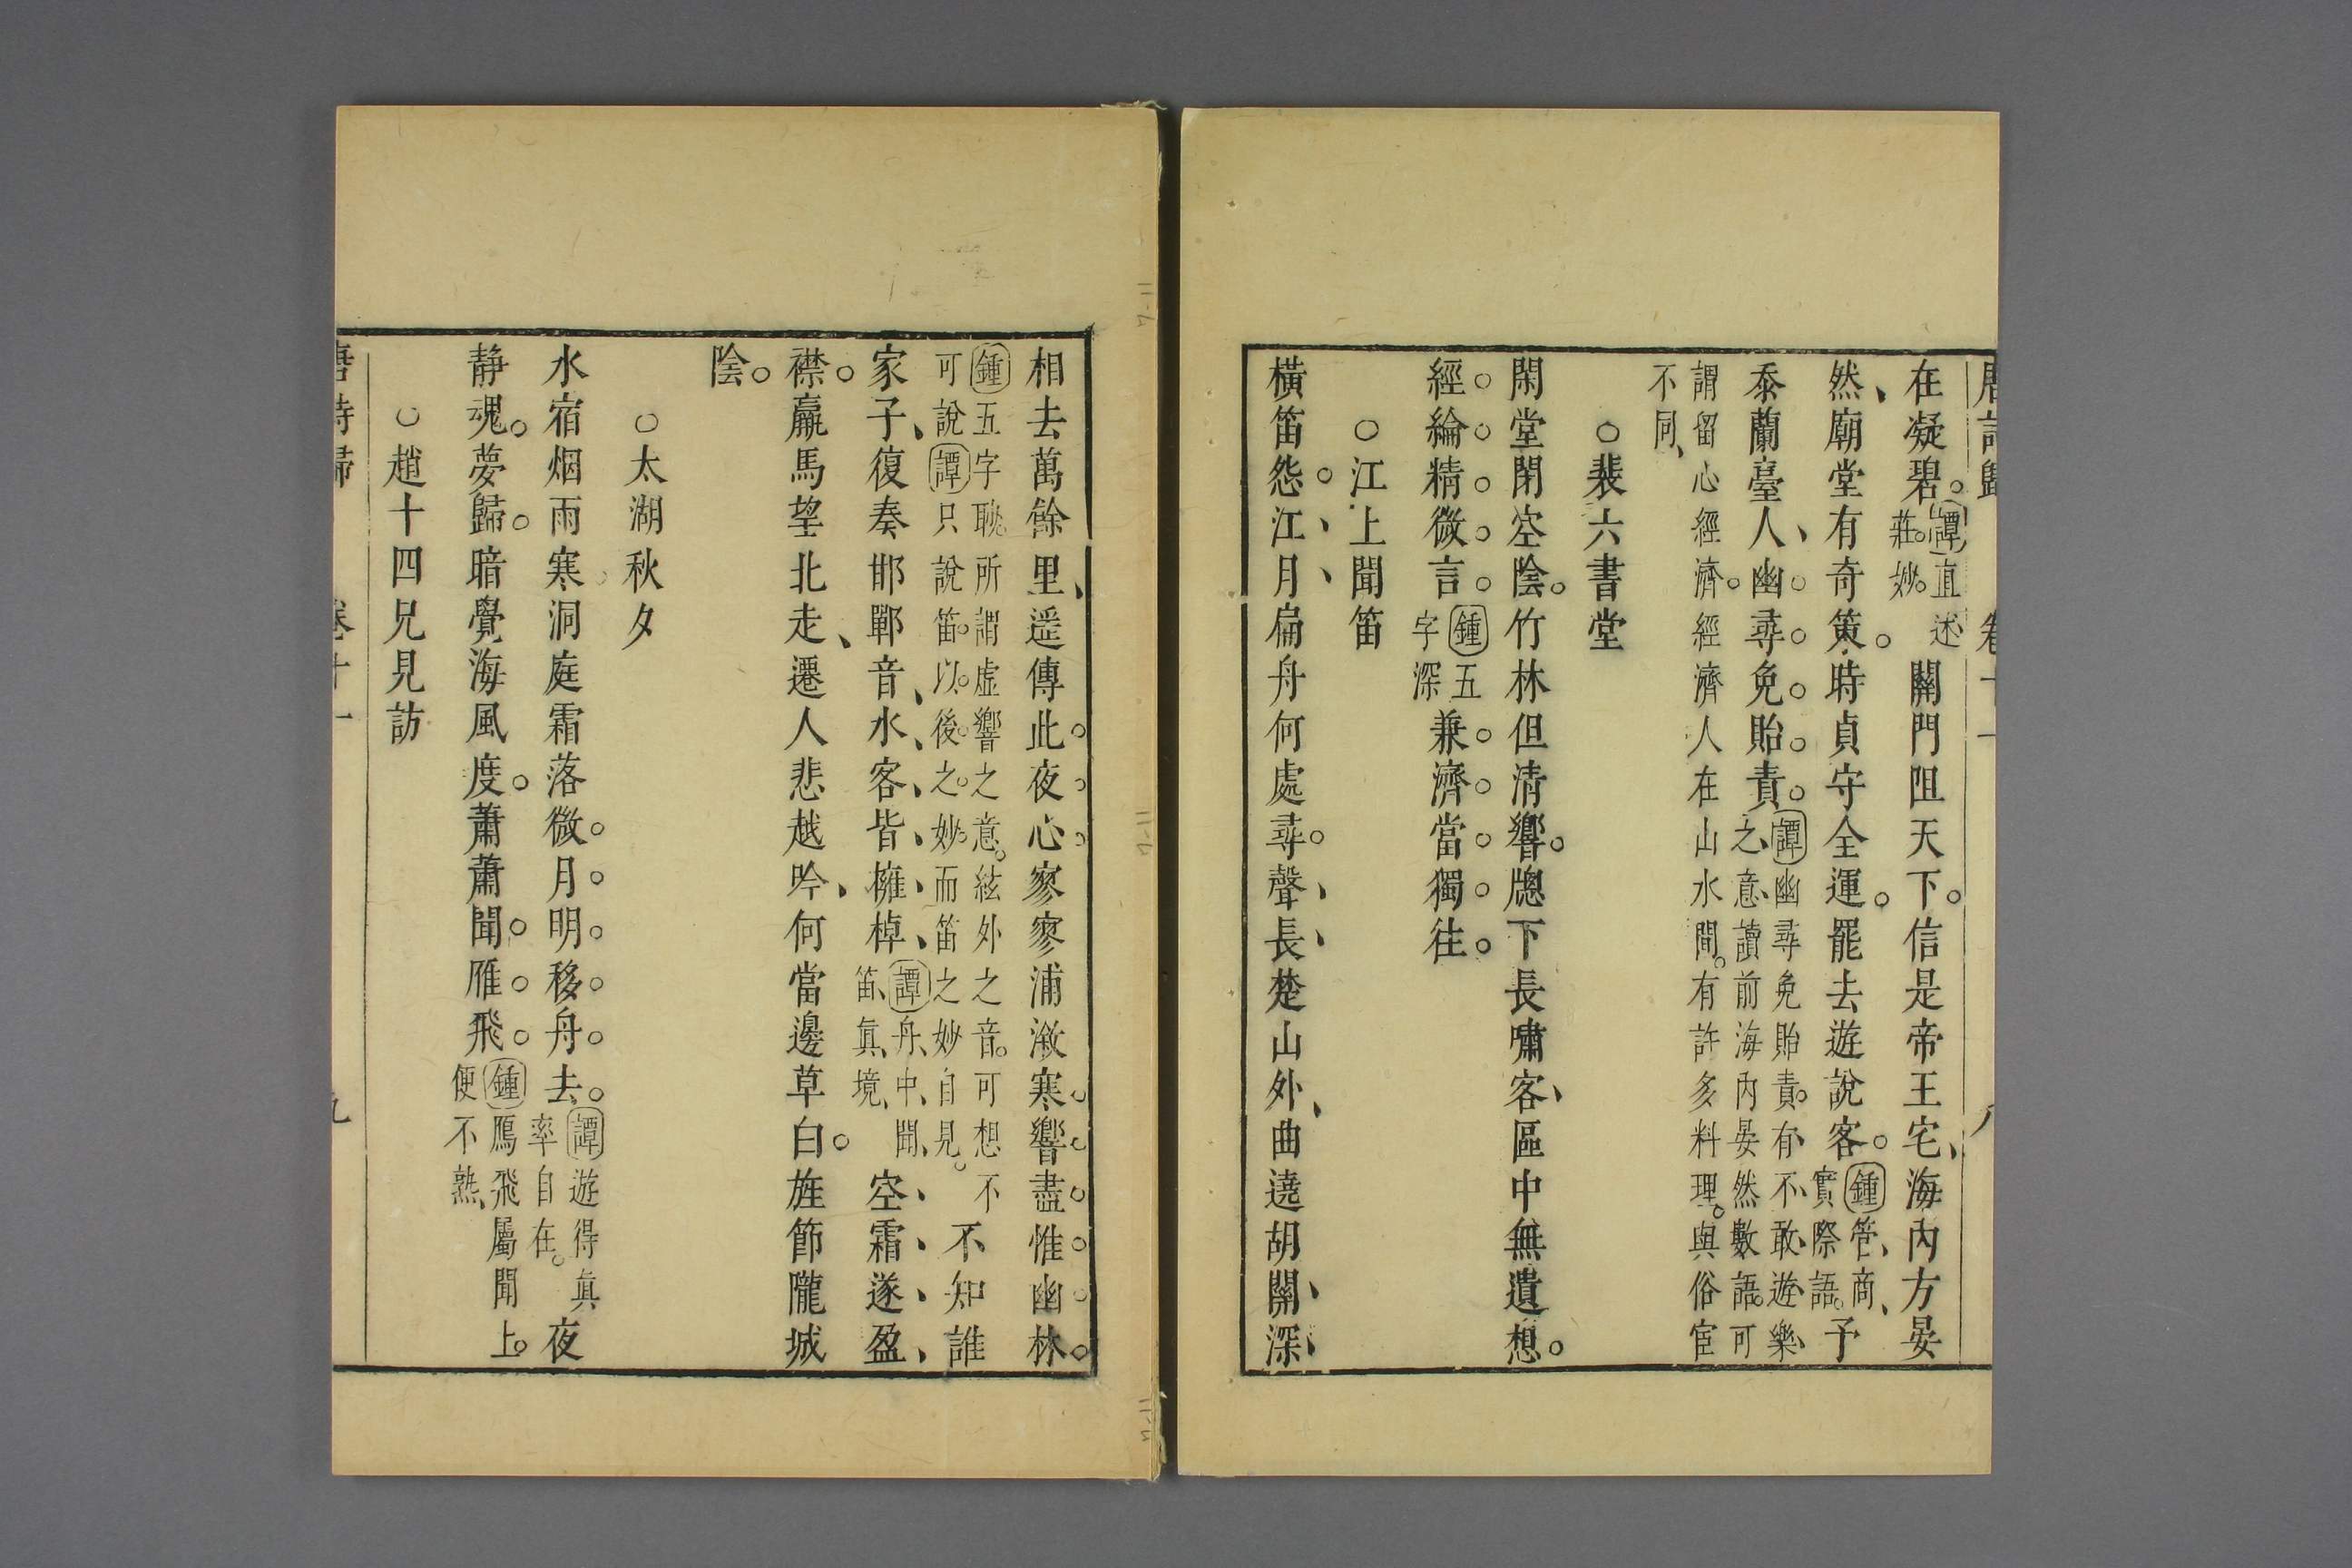 唐詩歸 卷十一 八
在凝碧譚直述莊妙關門阻天下信是帝王宅海內方晏
然廟堂有奇策時貞守全運罷去遊說客鍾管商實際語予
忝蘭臺人幽尋免貽責譚幽尋免貽責有不敢遊樂之意讀前海內晏然數語可
謂留心經濟經濟人在山水間有許多料理與俗宦
不同
○裴六書堂
閑堂閉空陰竹林但清響牕下長嘯客區中無遺想
經綸精微言鍾五字深兼濟當獨往
○江上聞笛
橫笛怨江月扁舟何處尋聲長楚山外曲遶胡關深
相去萬餘里遥傳此夜心寥寥浦漵寒響盡惟幽林
鍾五字眇所謂虛響之意絃外之音可想不可說譚只說笛以後之妙而笛之妙自見不知誰
家子復奏邯鄲音水客皆擁棹譚舟中聞笛真境空霜遂盈
襟羸馬望北走遷人悲越吟何當邊草白旌節隴城
陰
○太湖秋夕
水宿烟雨寒洞庭霜落微月明移舟去譚遊得真率自在夜
静魂夢歸暗覺海風度蕭蕭聞雁飛鍾鴈飛屬聞上便不熟
○趙十四兄見訪
唐詩歸 卷十一 九